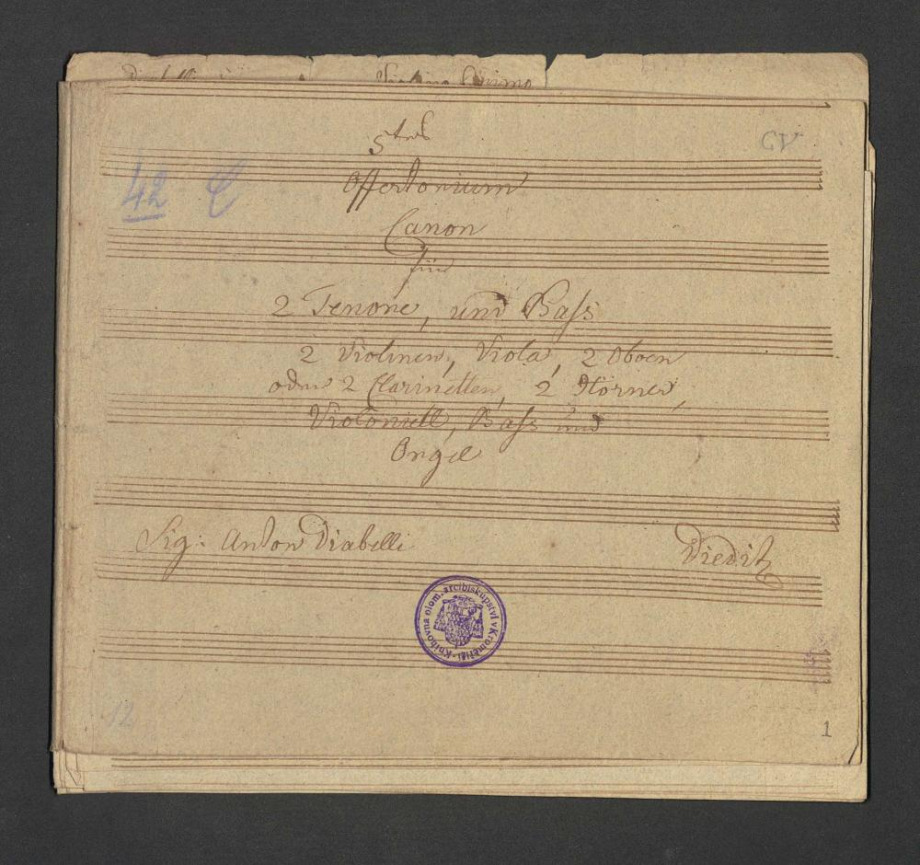 5tes
CV
42 C
Offertorium
Canon
für
2 Tenore, und Bass
2 Violinen, Viola, 2 Oboen
oder 2 Clarinetten, 2 Hörner,
Violoncell, Bass und
Orgel
Sig: Anton Diabelli
Knihovna olom. arcibiskupství v Kroměříži
12
1